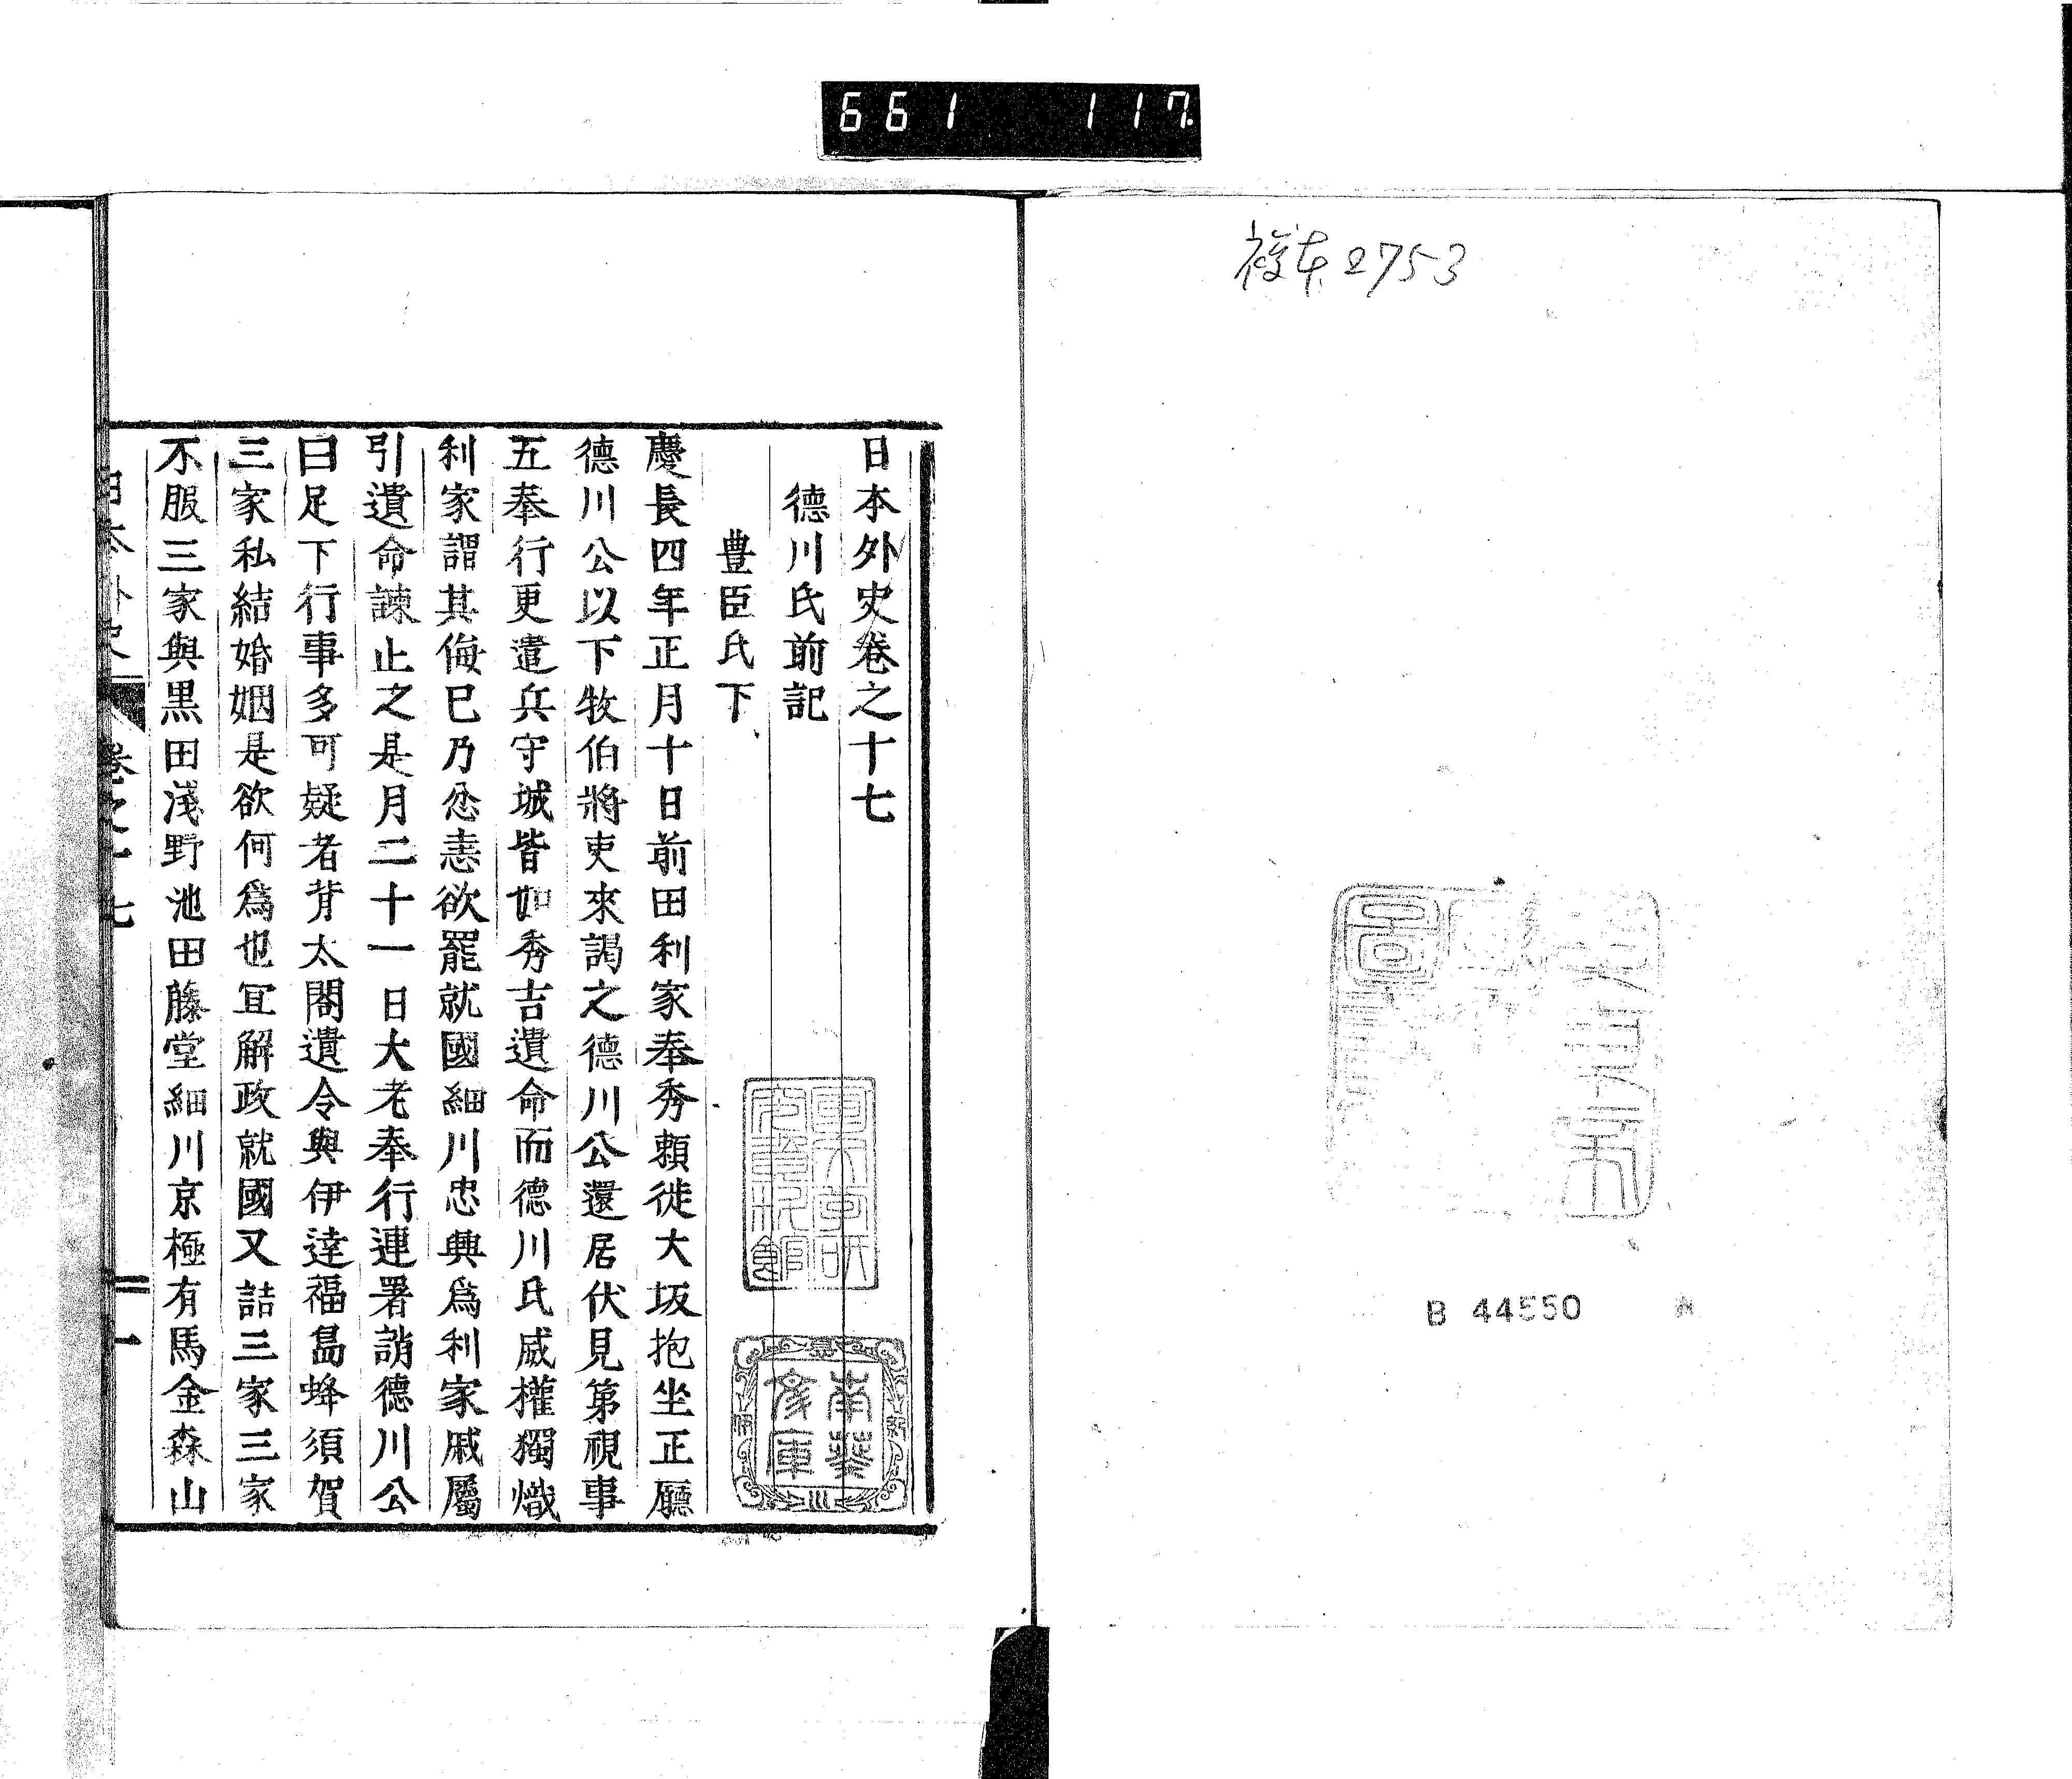 661 117
複本2753
B 44550
日本外史卷之十七
德川氏前記
豊臣氏下
慶長四年正月十日前田利家奉秀賴徙大坂抱坐正廳
德川公以下牧伯將吏來謁之德川公還居伏見第視事
五奉行更遣兵守城皆如秀吉遺命而德川氏威權獨熾
利家謂其侮己乃忿恚欲罷就國細川忠興爲利家戚屬
引遺命諫止之是月二十一日大老奉行連署誚德川公
曰足下行事多可疑者背太閤遺令與伊達福島蜂須賀
三家私結婚姻是欲何爲也宜解政就國又詰三家三家
不服三家與黒田淺野池田藤堂細川京極有馬金森山
日本外史 卷之十七 一